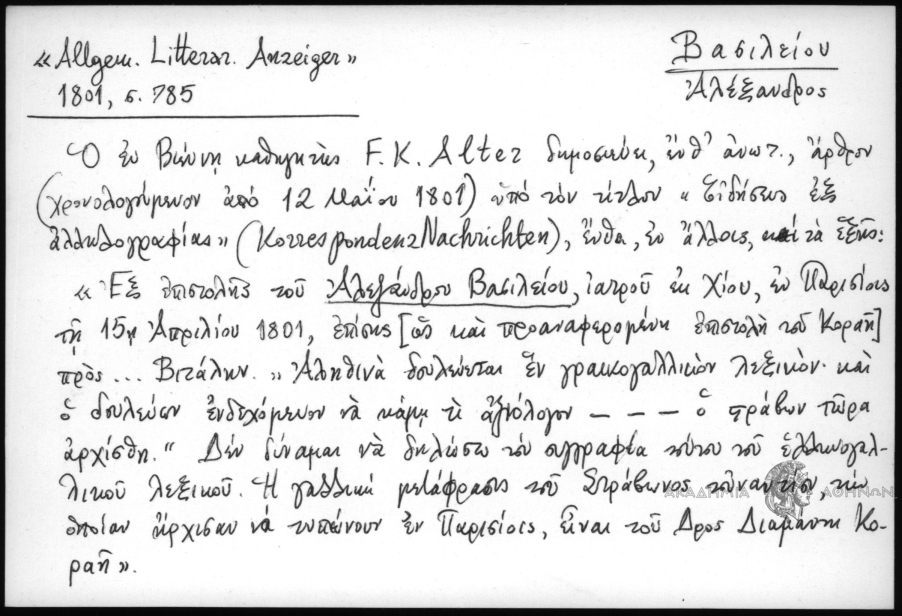 «Allgem. Litterar. Anzeiger»
1801, σ. 785
Βασιλείου
Ἀλέξανδρος
Ὁ ἐν Βιέννῃ καθηγητὴς F. K. Alter δημοσιεύει, ἔνθ' ἀνωτ., ἄρθρον
(χρονολογούμενον ἀπό 12 Μαΐου 1801) ὑπό τὸν τίτλον «Εἰδήσεις ἐξ
ἀλληλογραφίας» (Korrespondenz Nachrichten), ἔνθα, ἐν ἄλλοις, καὶ τὰ ἑξῆς:
«Ἐξ ἐπιστολῆς τοῦ Ἀλεξάνδρου Βασιλείου, ἰατροῦ ἐκ Χίου, ἐν Παρισίοις
τῇ 15ῃ Ἀπριλίου 1801, ἐπίσης [ὡς καὶ προαναφερομένη ἐπιστολὴ τοῦ Κοραῆ]
πρὸς ... Βιτάλην. „Ἀληθινὰ δουλεύεται ἓν γραικογαλλικὸν λεξικὸν· καὶ
ὁ δουλεύων ἐνδεχόμενον νὰ κάμῃ τὶ ἀξιόλογον – – – ὁ στράβων τῶρα
ἀρχίσθη.“ Δὲν δύναμαι νὰ δηλώσω τὸν συγγραφέα τούτου τοῦ ἑλληνογαλ-
λικοῦ λεξικοῦ. Ἡ γαλλικὴ μετάφρασις τοῦ Στράβωνος τοὐναντίον, τὴν
ὁποίαν ἤρχισαν νὰ τυπώνουν ἐν Παρισίοις, εἶναι τοῦ Δρος Διαμάντη Κο-
ραῆ».
ΑΚΑΔΗΜΙΑ ΑΘΗΝΩΝ